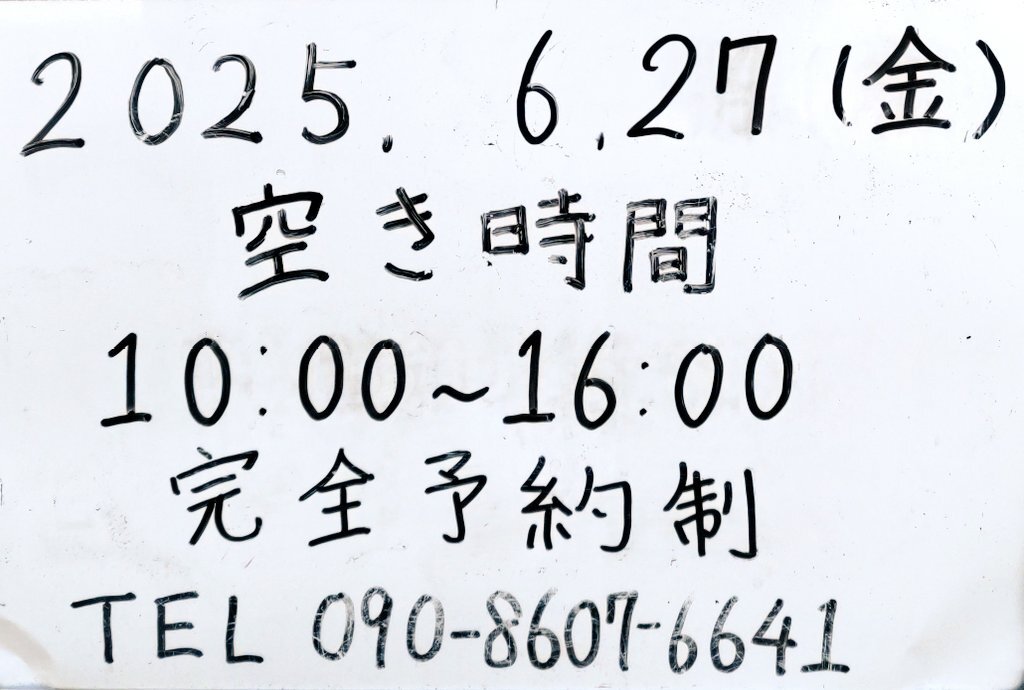 2025. 6.27(金)
空き時間
10:00~16:00
完全予約制
TEL 090-8607-6641